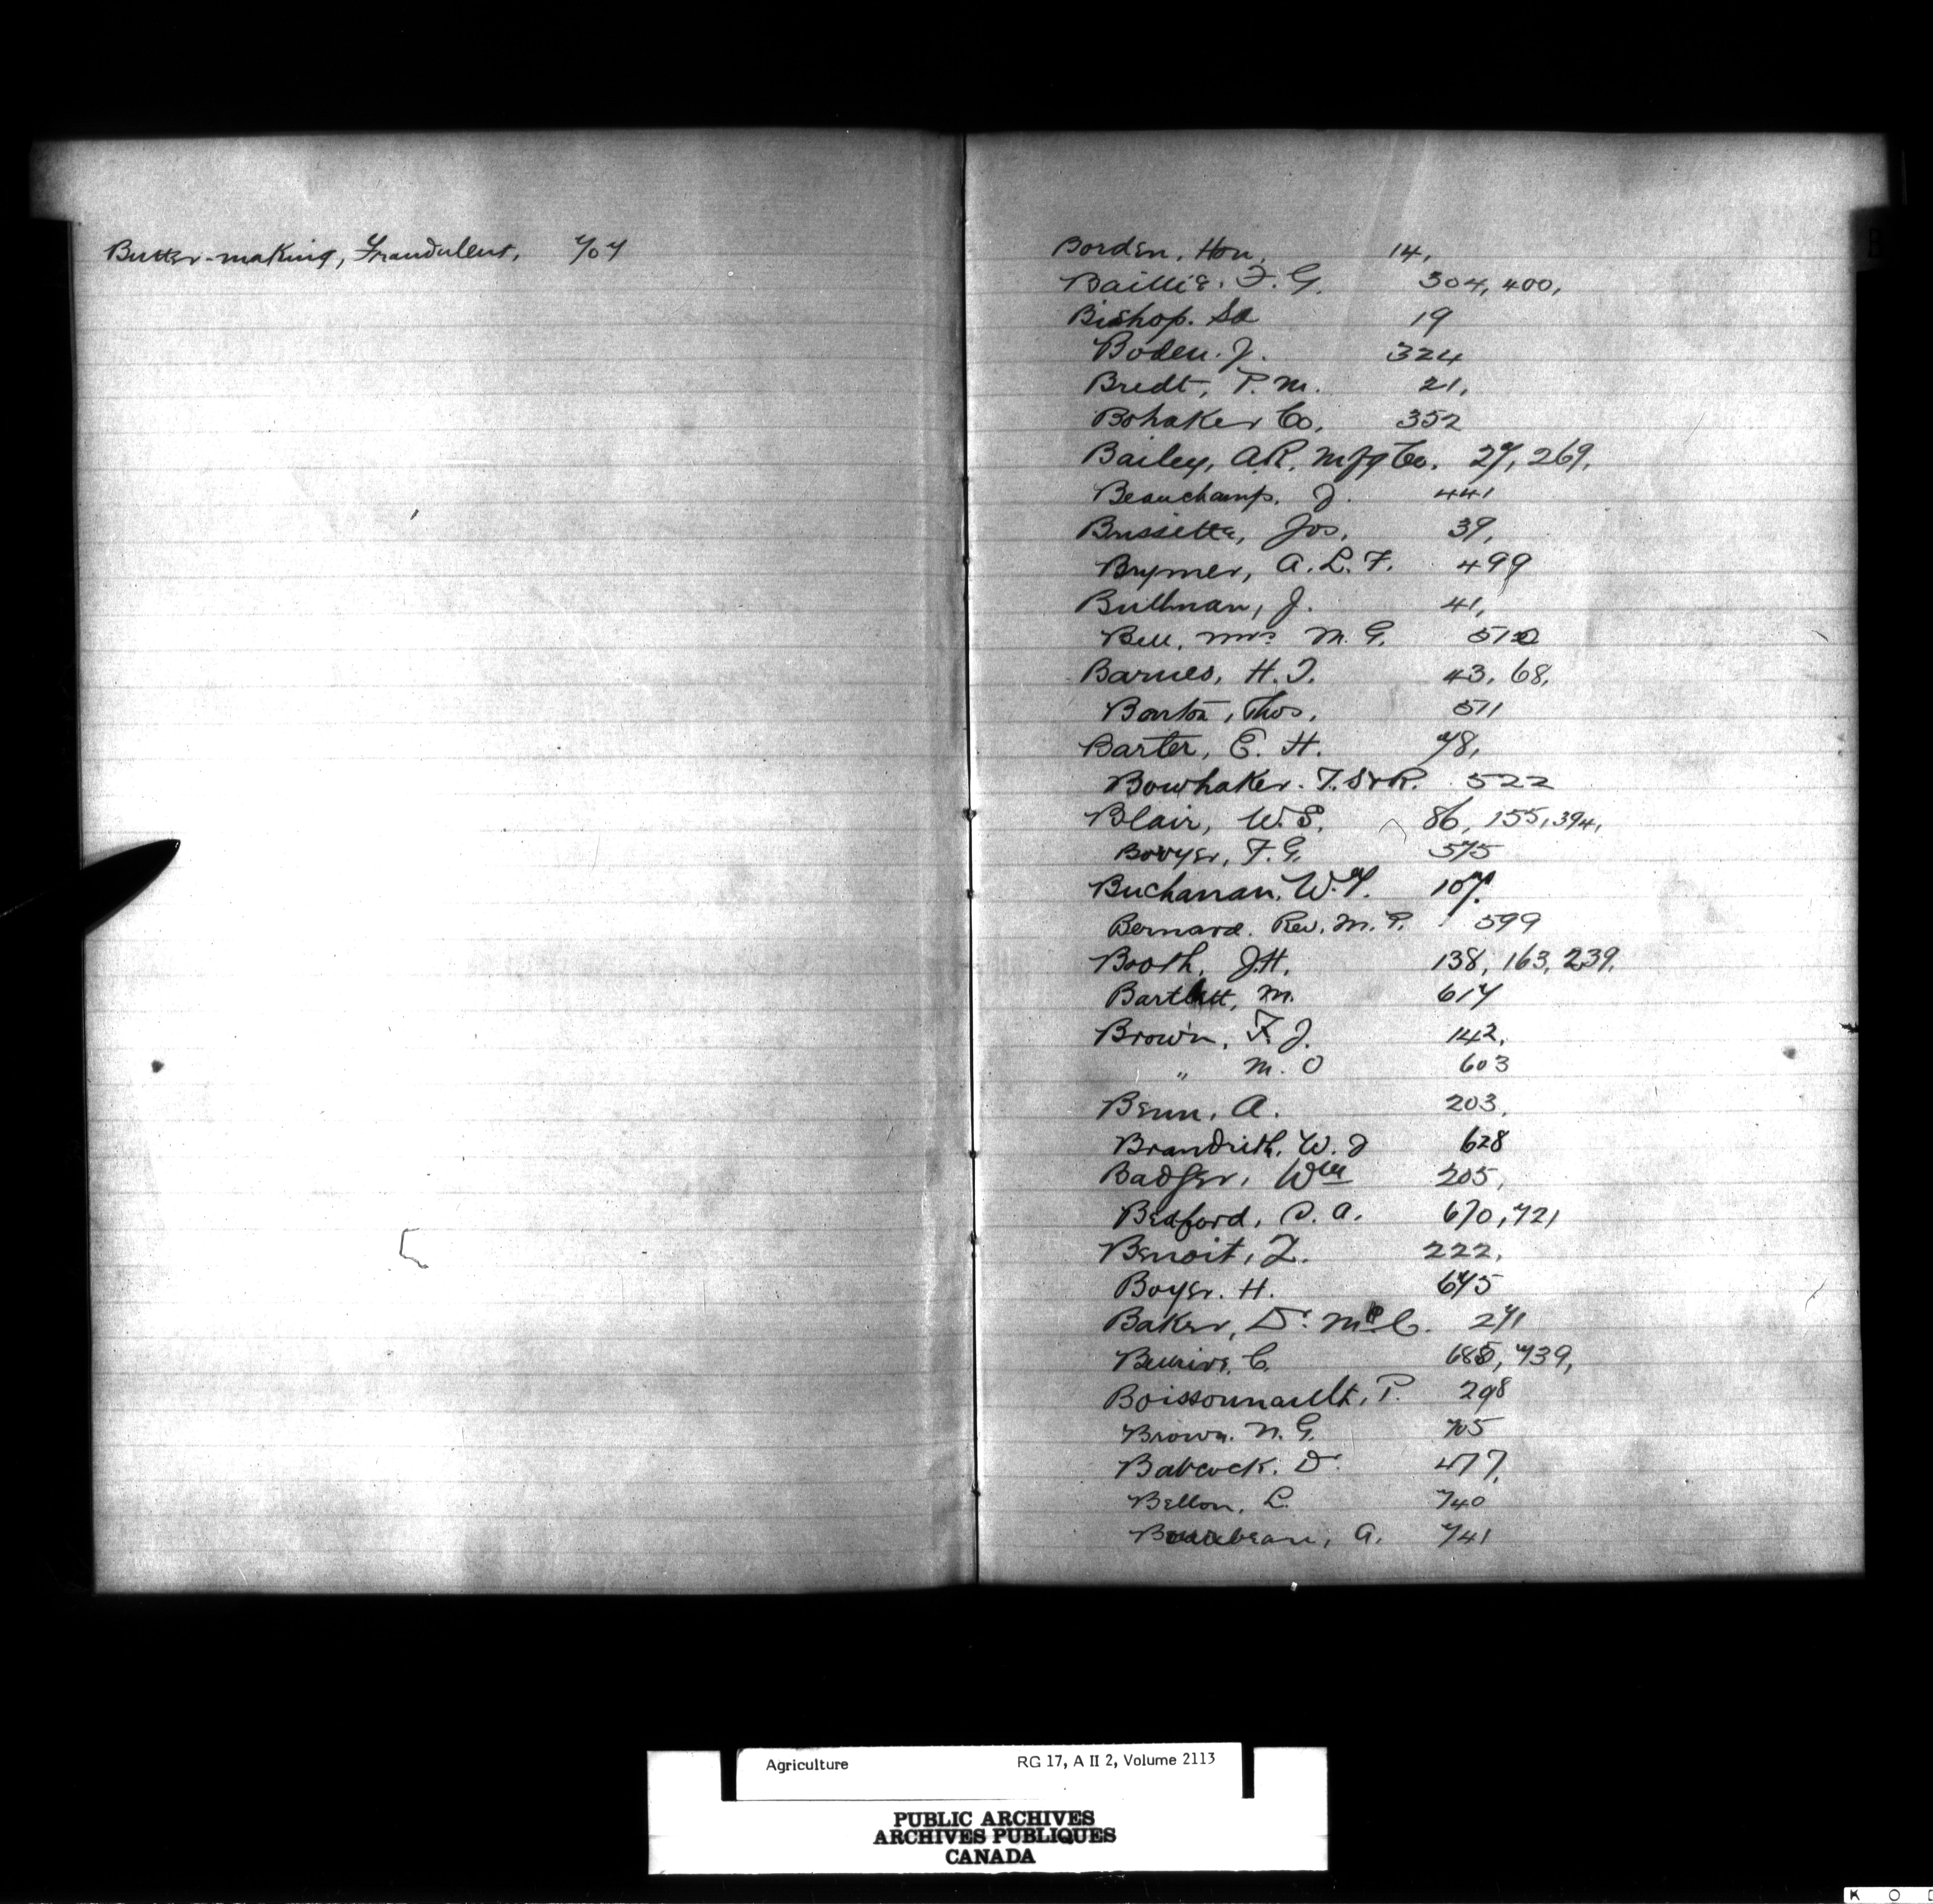 Butter-making, Fraudulent, 707
Borden, Hon. 14,
Baillie, F. G. 304, 400,
Bishop. Sd 19
Boden. J. 324
Bredt, P. M. 21,
Bohaker Co. 352
Bailey, A.R. Mfg Co. 27, 269,
Beauchamp, J. 441
Bussette, Jos, 39,
Brymer, A. L. F. 499
Bullman, J. 41,
Bell, Mrs M. G. 510
Barnes, H. T. 43, 68,
Barton, Thos, 511
Barter, E. H. 78,
Bowhaker. T. S & R. 522
Blair, W. S. 86, 155, 394,
Bovyer, F. G. 575
Buchanan, W. Y. 107.
Bernard. Rev. M. P. 599
Booth, J.H. 138, 163, 239,
Bartlett, M. 617
Brown, F. J. 142,
" M. O 603
Benn, A. 203,
Brandrith, W. J 628
Badger, Wm 205,
Bedford, S. A. 670, 721
Benoit, L. 222,
Boyer. H. 675
Baker, Dr. 271
C. 685, 739,
Boissonnault, P. 298
Brown. N. G. 705
Babcock. Dr. 477,
Bellon, L. 740
A. 741
B
Agriculture RG 17, A II 2, Volume 2113
PUBLIC ARCHIVES
ARCHIVES PUBLIQUES
CANADA
K O D